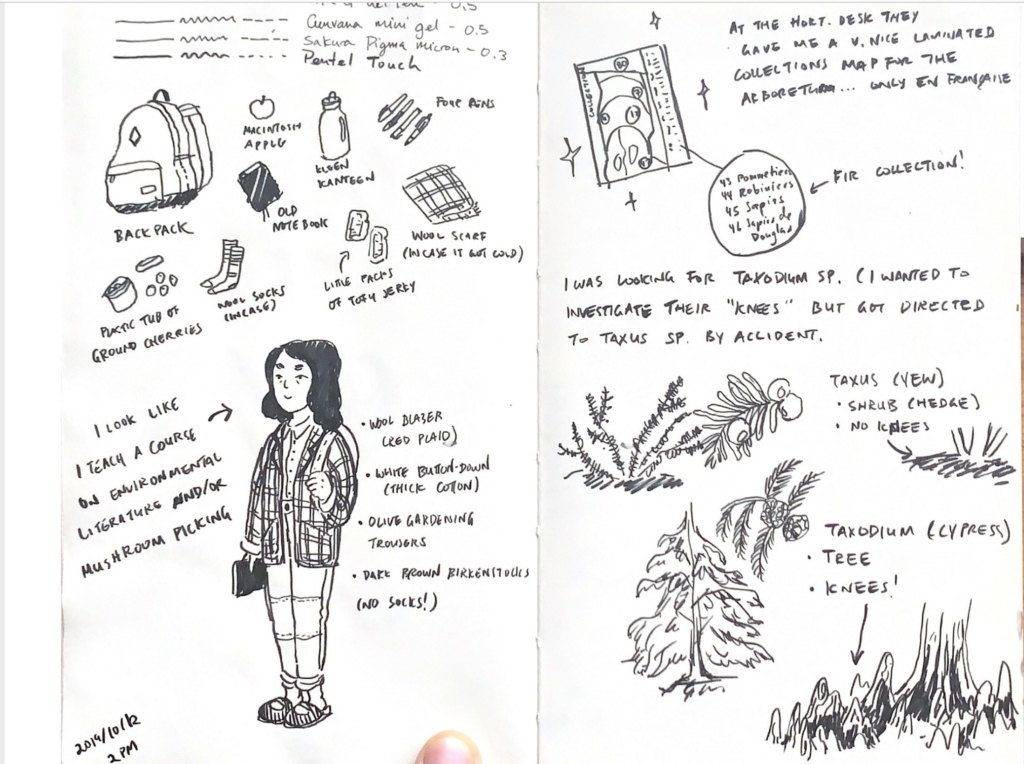 0.5
Cunvana mini gel - 0.5
Sakura Pigma micron - 0.3
Pentel Touch
BACKPACK
MACINTOSH
APPLE
KLEEN
KANTEEN
FOUR PENS
OLD
NOTEBOOK
WOOL SCARF
(INCASE IT GOT COLD)
PLASTIC TUB OF
GROUND CHERRIES
WOOL SOCKS
(INCASE)
LITTLE PACKS
OF TOFU JERKY
I LOOK LIKE
I TEACH A COURSE
ON ENVIRONMENTAL
LITERATURE AND/OR
MUSHROOM PICKING
• WOOL BLAZER
(RED PLAID)
• WHITE BUTTON-DOWN
(THICK COTTON)
• OLIVE GARDENING
TROUSERS
• DARK BROWN BIRKENSTOCKS
(NO SOCKS!)
2019/10/12
2 PM
AT THE HORT. DESK THEY
GAVE ME A V. NICE LAMINATED
COLLECTIONS MAP FOR THE
ARBORETUM... ONLY EN FRANÇAISE
43 Pommetiers
44 Robiniers
45 Sapins
46 Sapins de
Douglas
FIR COLLECTION!
I WAS LOOKING FOR TAXODIUM SP. (I WANTED TO
INVESTIGATE THEIR "KNEES" BUT GOT DIRECTED
TO TAXUS SP. BY ACCIDENT.
TAXUS (YEW)
• SHRUB (HEDGE)
• NO KNEES
TAXODIUM (CYPRESS)
• TREE
• KNEES!